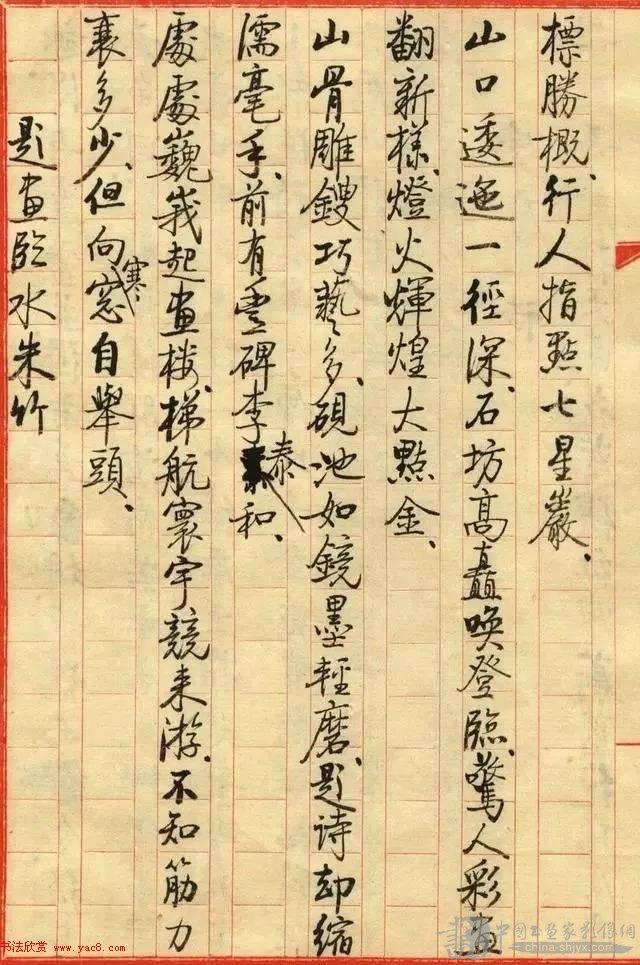 標勝概、行人指點七星巖、
山口逶迤一徑深、石坊高矗喚登臨、驚人彩畫
翻新樣、燈火輝煌大點金、
山骨雕鎪巧藝多、硯池如鏡墨輕磨、題诗却縮
濡毫手、前有豊碑李泰和、
處處巍峩起画楼、梯航寰宇競来游、不知筋力
衰多少、但向寒窓自舉頭、
题畫臨水朱竹
书法欣赏 www.yac8.com
中国书画家影像网
china-shjyx.com